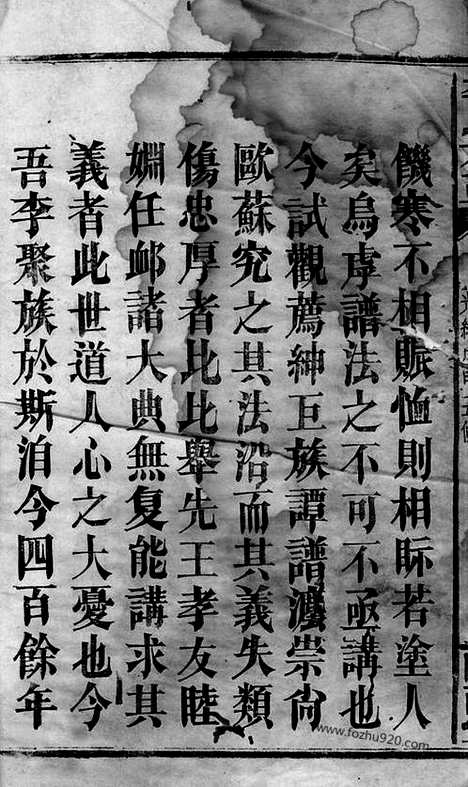 饑寒不相賑恤則相眎若塗人
矣烏虖譜法之不可不亟講也
今試觀薦紳巨族譚譜灋崇尙
歐蘇究之其法沿而其義失類
傷忠厚者比比舉先王孝友睦
婣任卹諸大典無复能講求其
義者此世道人心之大憂也今
吾李聚族於斯洎今四百餘年
www.fozhu920.com